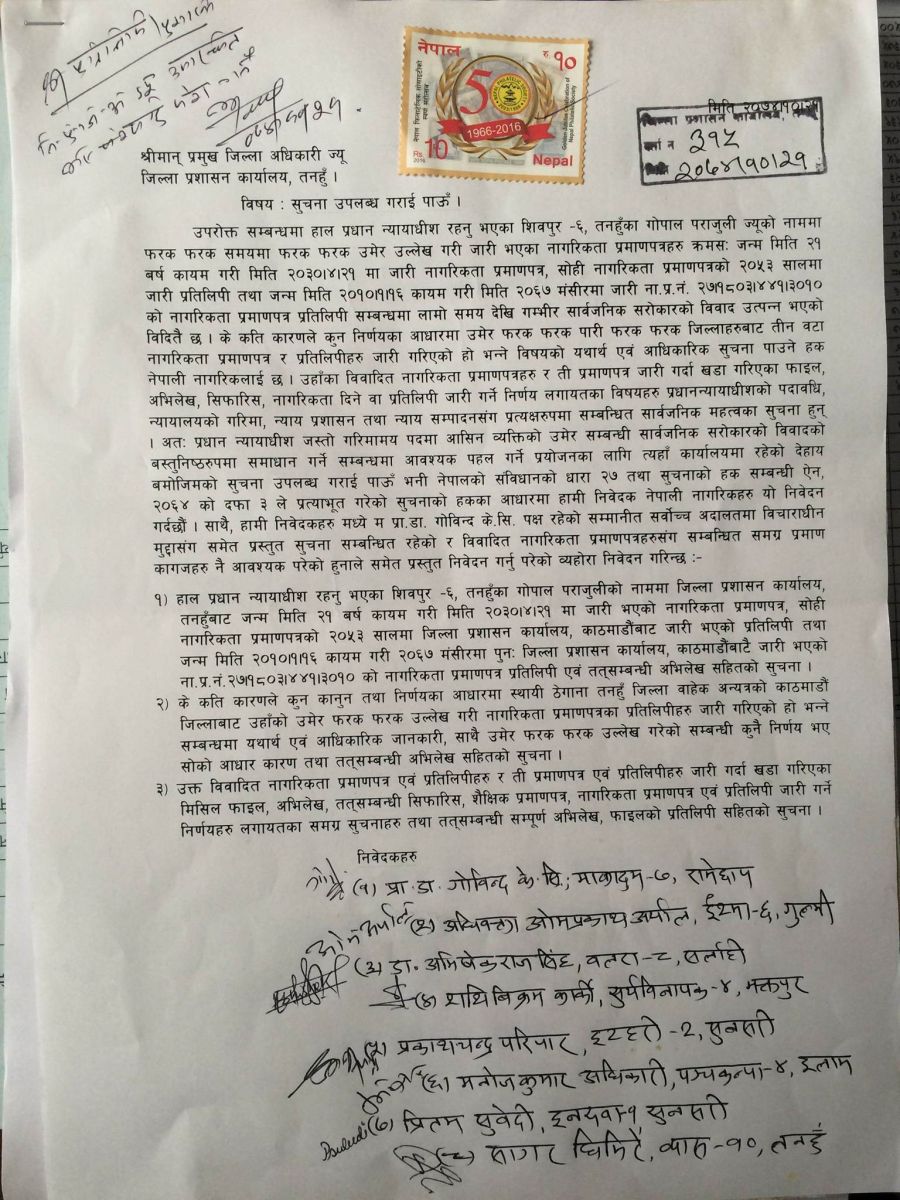 नेपाल
रु. १०
नेपाल फिलाटेलिक सोसाइटीको
स्वर्ण महोत्सव
5
1966-2016
Golden Jubilee Celebration of
Nepal Philatelic Society
Rs. 10
2016
Nepal
मिति २०७४।१०।२९
जिल्ला प्रशासन कार्यालय,
दर्ता नं
२०७४।१०।२९
श्रीमान् प्रमुख जिल्ला अधिकारी ज्यू
जिल्ला प्रशासन कार्यालय, तनहुँ ।
विषय : सुचना उपलब्ध गराई पाऊँ ।
उपरोक्त सम्बन्धमा हाल प्रधान न्यायाधीश रहनु भएका शिवपुर -६, तनहुँका गोपाल पराजुली ज्यूको नाममा
फरक फरक समयमा फरक फरक उमेर उल्लेख गरी जारी भएका नागरिकता प्रमाणपत्रहरु क्रमस: जन्म मिति २१
बर्ष कायम गरी मिति २०३०।४।२१ मा जारी नागरिकता प्रमाणपत्र, सोही नागरिकता प्रमाणपत्रको २०५३ सालमा
जारी प्रतिलिपी तथा जन्म मिति २०१०।१।१६ कायम गरी मिति २०६७ मंसीरमा जारी ना.प्र.नं. २७।१८०३।४४१।३०१०
को नागरिकता प्रमाणपत्र प्रतिलिपी सम्बन्धमा लामो समय देखि गम्भीर सार्वजनिक सरोकारको विवाद उत्पन्न भएको
विदितै छ । के कति कारणले कुन निर्णयका आधारमा उमेर फरक फरक पारी फरक फरक जिल्लाहरुबाट तीन वटा
नागरिकता प्रमाणपत्र र प्रतिलिपीहरु जारी गरिएको हो भन्ने विषयको यथार्थ एवं आधिकारिक सुचना पाउने हक
नेपाली नागरिकलाई छ । उहाँका विवादित नागरिकता प्रमाणपत्रहरु र ती प्रमाणपत्र जारी गर्दा खडा गरिएका फाइल,
अभिलेख, सिफारिस, नागरिकता दिने वा प्रतिलिपी जारी गर्ने निर्णय लगायतका विषयहरु प्रधानन्यायाधीशको पदावधि,
न्यायालयको गरिमा, न्याय प्रशासन तथा न्याय सम्पादनसंग प्रत्यक्षरुपमा सम्बन्धित सार्वजनिक महत्वका सुचना हुन्
। अत: प्रधान न्यायाधीश जस्तो गरिमामय पदमा आसिन व्यक्तिको उमेर सम्बन्धी सार्वजनिक सरोकारको विवादको
बस्तुनिष्ठरुपमा समाधान गर्ने सम्बन्धमा आवश्यक पहल गर्ने प्रयोजनका लागि त्यहाँ कार्यालयमा रहेको देहाय
बमोजिमको सुचना उपलब्ध गराई पाऊँ भनी नेपालको संविधानको धारा २७ तथा सुचनाको हक सम्बन्धी ऐन,
२०६४ को दफा ३ ले प्रत्याभूत गरेको सुचनाको हकका आधारमा हामी निवेदक नेपाली नागरिकहरु यो निवेदन
गर्दछौं । साथै, हामी निवेदकहरु मध्ये म प्रा.डा. गोविन्द के.सि. पक्ष रहेको सम्मानीत सर्वोच्च अदालतमा विचाराधीन
मुद्दासंग समेत प्रस्तुत सुचना सम्बन्धित रहेको र विवादित नागरिकता प्रमाणपत्रहरुसंग सम्बन्धित समग्र प्रमाण
कागजहरु नै आवश्यक परेको हुनाले समेत प्रस्तुत निवेदन गर्नु परेको व्यहोरा निवेदन गरिन्छ :-
१) हाल प्रधान न्यायाधीश रहनु भएका शिवपुर -६, तनहुँका गोपाल पराजुलीको नाममा जिल्ला प्रशासन कार्यालय,
तनहुँबाट जन्म मिति २१ बर्ष कायम गरी मिति २०३०।४।२१ मा जारी भएको नागरिकता प्रमाणपत्र, सोही
नागरिकता प्रमाणपत्रको २०५३ सालमा जिल्ला प्रशासन कार्यालय, काठमाडौंबाट जारी भएको प्रतिलिपी तथा
जन्म मिति २०१०।१।१६ कायम गरी २०६७ मंसीरमा पुन: जिल्ला प्रशासन कार्यालय, काठमाडौंबाटै जारी भएको
ना.प्र.नं.२७।१८०३।४४१।३०१० को नागरिकता प्रमाणपत्र प्रतिलिपी एवं तत्सम्बन्धी अभिलेख सहितको सुचना ।
२) के कति कारणले कुन कानुन तथा निर्णयका आधारमा स्थायी ठेगाना तनहुँ जिल्ला वाहेक अन्यत्रको काठमाडौं
जिल्लाबाट उहाँको उमेर फरक फरक उल्लेख गरी नागरिकता प्रमाणपत्रका प्रतिलिपीहरु जारी गरिएको हो भन्ने
सम्बन्धमा यथार्थ एवं आधिकारिक जानकारी, साथै उमेर फरक फरक उल्लेख गरेको सम्बन्धी कुनै निर्णय भए
सोको आधार कारण तथा तत्सम्बन्धी अभिलेख सहितको सुचना ।
३) उक्त विवादित नागरिकता प्रमाणपत्र एवं प्रतिलिपीहरु र ती प्रमाणपत्र एवं प्रतिलिपीहरु जारी गर्दा खडा गरिएका
मिसिल फाइल, अभिलेख, तत्सम्बन्धी सिफारिस, शैक्षिक प्रमाणपत्र, नागरिकता प्रमाणपत्र एवं प्रतिलिपी जारी गर्ने
निर्णयहरु लगायतका समग्र सुचनाहरु तथा तत्सम्बन्धी सम्पूर्ण अभिलेख, फाइलको प्रतिलिपी सहितको सुचना ।
निवेदकहरु
(१) प्रा.डा. गोविन्द के.सि., माकादुम-७, रामेछाप
(२) अधिवक्ता ओमप्रकाश अर्याल, ईश्मा-६, गुल्मी
(३) डा. अभिषेकराज सिंह, वलरा-८, सर्लाही
(४) शशि बिक्रम कार्की, सुर्यविनायक-४, भक्तपुर
(५) प्रकाशचन्द्र परियार, इटहरी-2, सुनसरी
(६) मनोजकुमार अधिकारी, पञ्चकन्या-४, इलाम
(७) प्रितम सुवेदी, इनरुवा-१ सुनसरी
(८) सागर घिमिरे, व्यास-१०, तनहुँ